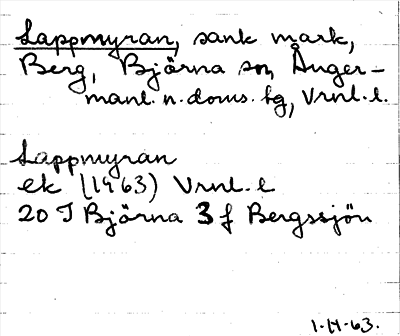 Lappmyran, sank mark,
Berg, Björna sn, Ånger-
manl. n. doms. tg, Vrnl. l.
Lappmyran
ek (1963) Vrnl. l
20 I Björna 3 f Bergssjön
1-H-63.